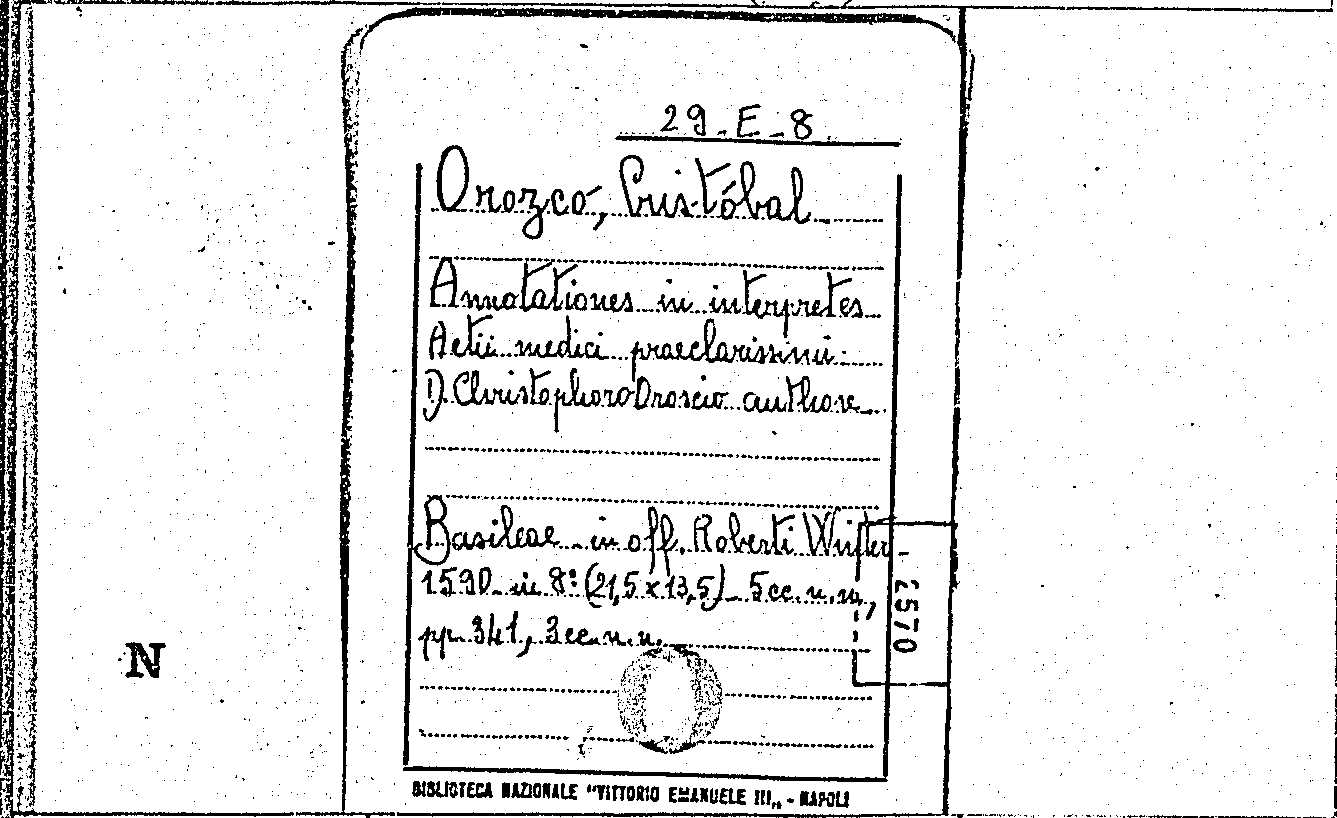 29-E-8
Orozco, Cristóbal
Annotationes in interpretes
Aetii medici praeclarissimi.
D. Christophoro Oroscio authore
Basileae - in off. Roberti Winter-
1590 - in 8° (21,5 x 13,5) - 5 cc. n. n.,
pp. 341, 3 cc. n. n.
2570
N
BIBLIOTECA NAZIONALE "VITTORIO EMANUELE III„ - NAPOLI